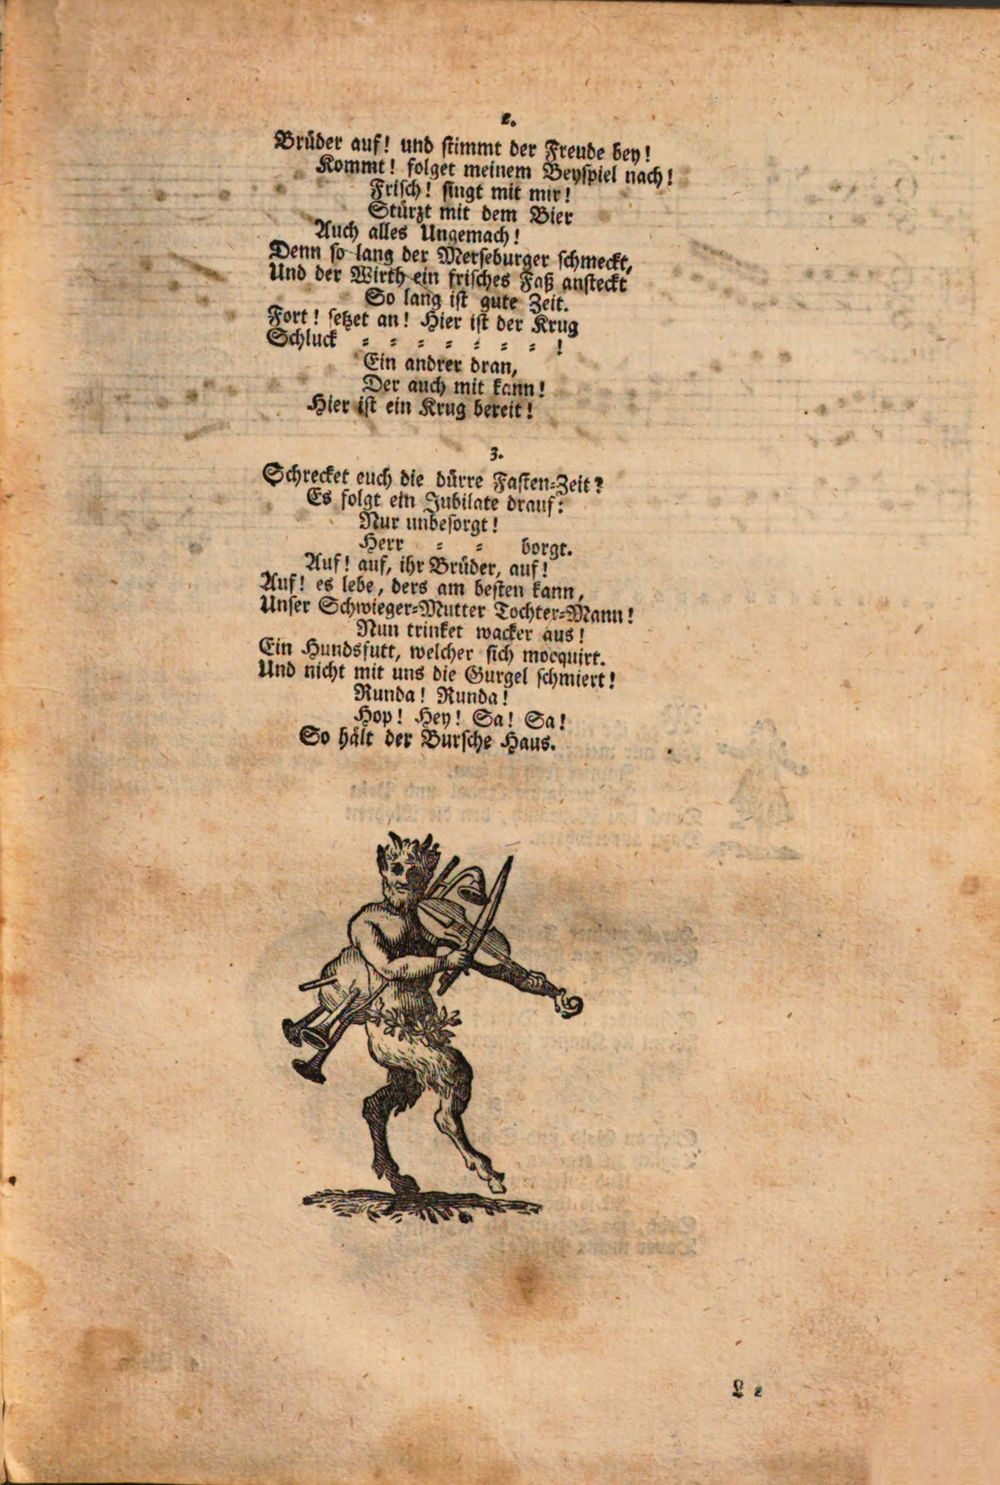 2.
Brüder auf! und stimmt der Freude bey!
Kommt! folget meinem Beyspiel nach!
Frisch! singt mit mir!
Stürzt mit dem Bier
Auch alles Ungemach!
Denn so lang der Merseburger schmeckt,
Und der Wirth ein frisches Faß ansteckt
So lang ist gute Zeit.
Fort! setzet an! Hier ist der Krug
Schluck = = = = = = = !
Ein andrer dran,
Der auch mit kann!
Hier ist ein Krug bereit!
3.
Schrecket euch die dürre Fasten=Zeit?
Es folgt ein Jubilate drauf:
Nur unbesorgt!
Herr = = borgt.
Auf! auf, ihr Brüder, auf!
Auf! es lebe, ders am besten kann,
Unser Schwieger=Mutter Tochter=Mann!
Nun trinket wacker aus!
Ein Hundsfutt, welcher sich mocquirt.
Und nicht mit uns die Gurgel schmiert!
Runda! Runda!
Hop! Hey! Sa! Sa!
So hält der Bursche Haus.
L 2